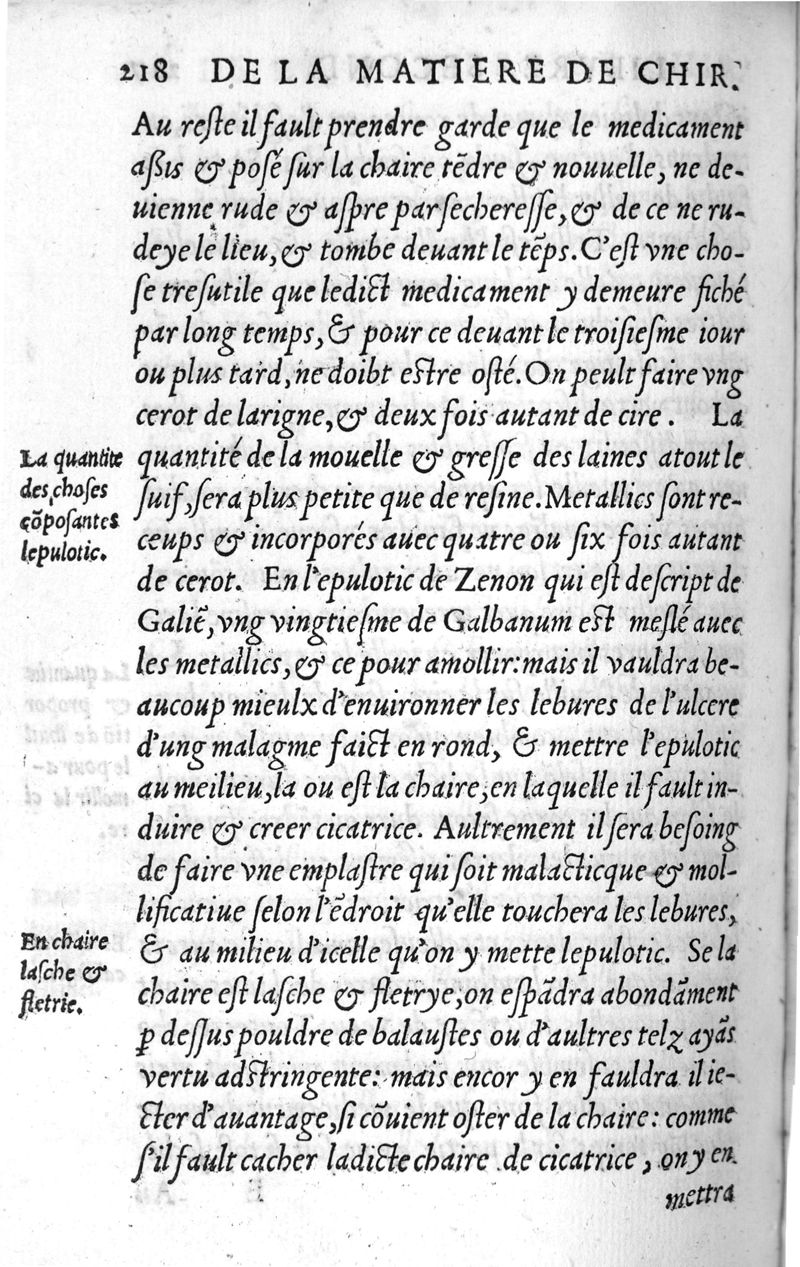 218 DE LA MATIERE DE CHIR.
Au reſte il fault prendre garde que le medicament
aßis & poſé ſur la chaire tẽdre & nouuelle, ne de-
uienne rude & aſpre par ſechereſſe, & de ce ne ru-
deye le lieu, & tombe deuant le tẽps. C'eſt vne cho-
ſe treſutile que ledict medicament y demeure fiché
par long temps, & pour ce deuant le troiſieſme iour
ou plus tard, ne doibt eſtre oſté. On peult faire vng
cerot de larigne, & deux fois autant de cire. La
La quantite
des choſes
cõpoſantes
lepulotic.
quantité de la mouelle & greſſe des laines atout le
ſuif, ſera plus petite que de reſine. Metallics ſont re-
ceups & incorporés auec quatre ou ſix fois autant
de cerot. En l'epulotic de Zenon qui eſt deſcript de
Galiẽ, vng vingtieſme de Galbanum eſt meſlé auec
les metallics, & ce pour amollir: mais il vauldra be-
aucoup mieulx d'enuironner les lebures de l'ulcere
d'ung malagme faict en rond, & mettre l'epulotic
au meilieu, la ou eſt la chaire, en laquelle il fault in-
duire & creer cicatrice. Aultrement il ſera beſoing
de faire vne emplaſtre qui ſoit malacticque & mol-
lificatiue ſelon l'ẽdroit qu'elle touchera les lebures,
En chaire
laſche &
fletrie.
& au milieu d'icelle qu'on y mette lepulotic. Se la
chaire eſt laſche & fletrye, on eſpãdra abondãment
ꝑ deſſus pouldre de balauſtes ou d'aultres telz ayãs
vertu adſtringente: mais encor y en fauldra il ie-
cter d'auantage, ſi cõuient oſter de la chaire: comme
s'il fault cacher ladicte chaire de cicatrice, on y en
mettra